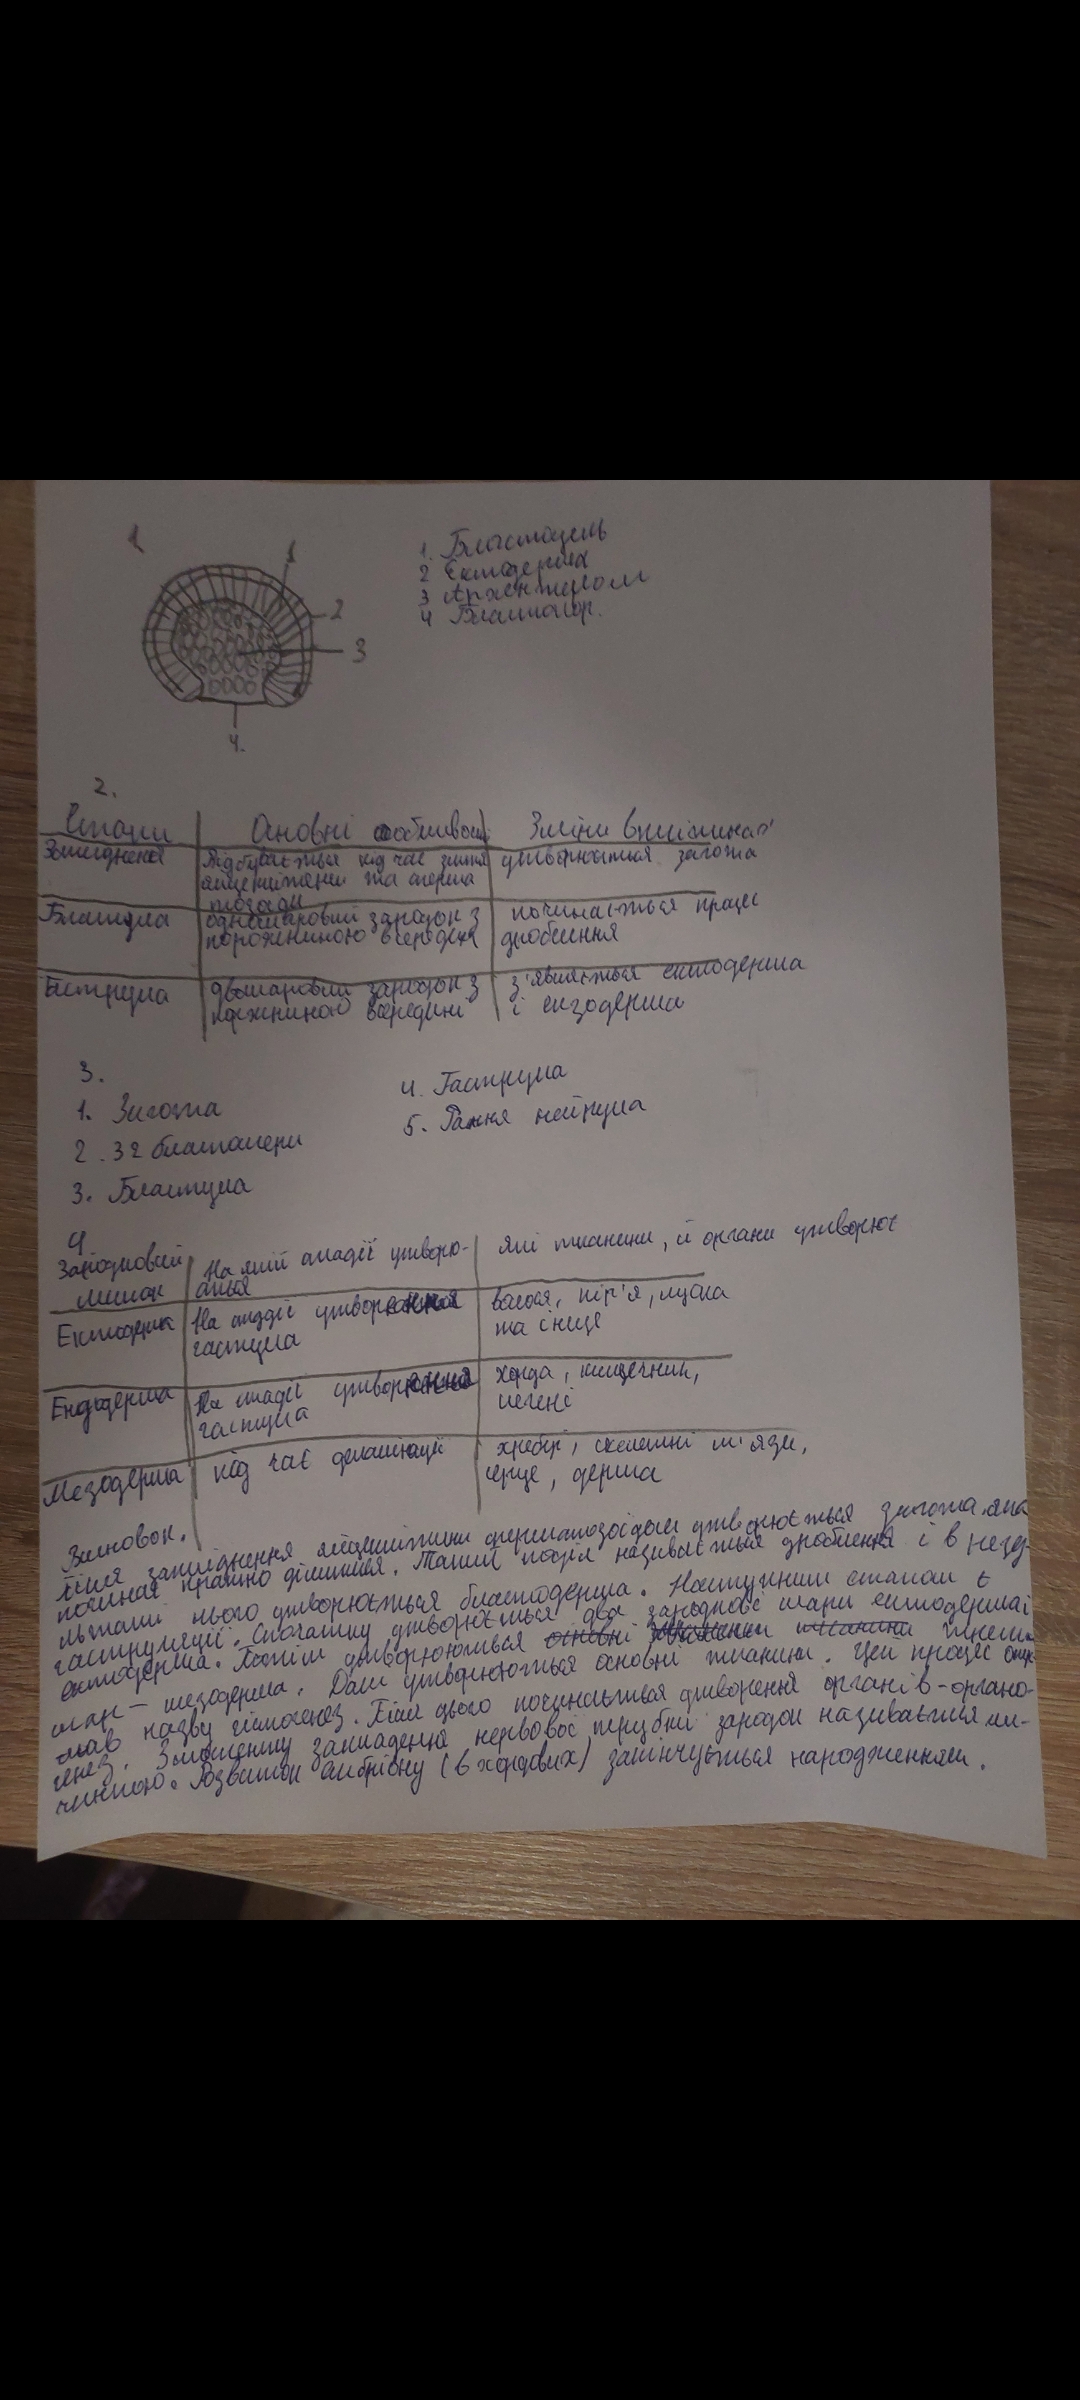 1.
1
2
3
4.
1. Бластоцель
2 Ектодерма
3 Архентерон
4 Бластопор.
2.
Етапи Основні особливості Зміни в клітинах
Запліднення Відбувається під час злиття утворюється зигота
яйцеклітини та сперма
тозоди
Бластула одношаровий зародок з починається процес
порожниною всередині дроблення
Гаструла двошаровий зародок з з'являється ектодерма
порожниною всередині і ензодерма
3.
1. Зигота
2. 32 бластомери
3. Бластула
4. Гаструла
5. Рання нейрула
4
Зародковий На якій стадії утворю- які тканини, й органи утворює
листок ється
Ектодерма На стадії утвор волося, пір'я, луска
гаструла та інше
Ендодерма На стадії утвор хорда, кишечник,
гаструла печені
Мезодерма під час деламінації хребці, скелетні м'язи,
серце, дерма
Висновок.
Після запліднення яйцеклітини сперматозоїдом утворюється зигота, яка
починає кратно ділитися. Такий поділ називається дроблення і в резу-
льтаті нього утворюється бластодерма. Наступним етапом є
гаструляції. Спочатку утворюється два зародкові шари ентодерма і
ектодерма. Потім утворюються основні
шар — мезодерма. Далі утворюються основні тканини. Цей процес
мав назву гістогенез. Після цього починається утворення органів-органо-
генез. З моменту закладення нервової трубки зародок називається ли-
чинкою. Розвиток ембріону (в хордових) закінчується народженням.